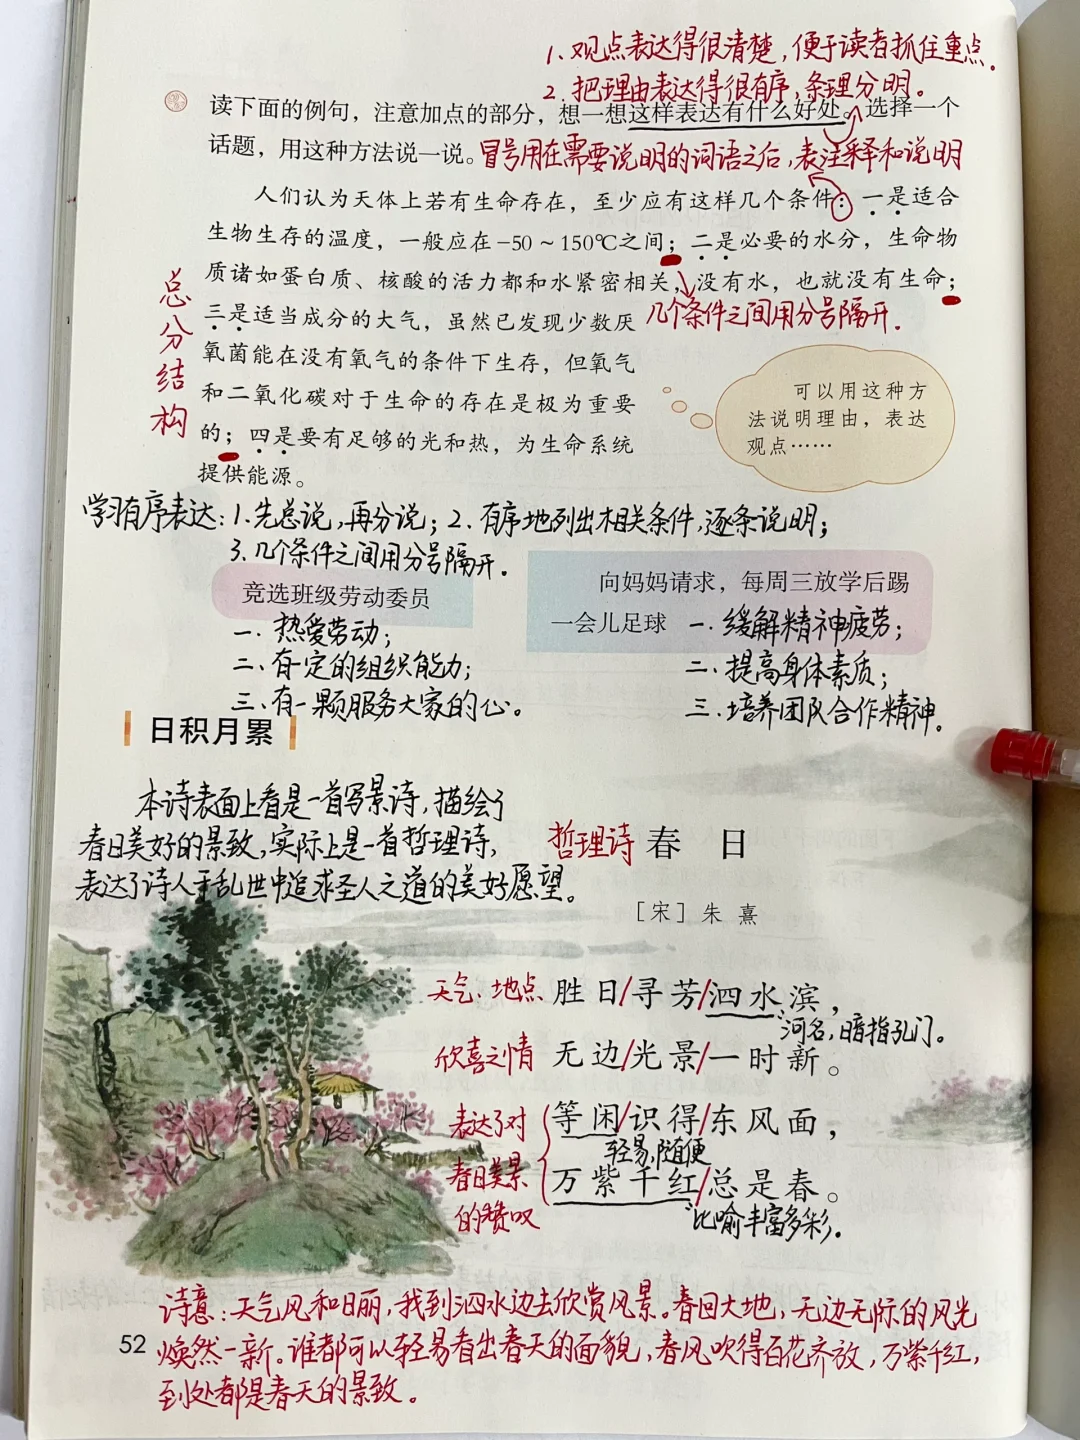 1、观点表达得很清楚，便于读者抓住重点。
2.把理由表达得很有序，条理分明。
读下面的例句，注意加点的部分，想一想这样表达有什么好处。选择一个
话题，用这种方法说一说。冒号用在需要说明的词语之后，表注释和说明
人们认为天体上若有生命存在，至少应有这样几个条件：一是适合
生物生存的温度，一般应在-50～150℃之间；二是必要的水分，生命物
质诸如蛋白质、核酸的活力都和水紧密相关，没有水，也就没有生命；
三是适当成分的大气，虽然已发现少数厌
几个条件之间用分号隔开.
氧菌能在没有氧气的条件下生存，但氧气
和二氧化碳对于生命的存在是极为重要
的；四是要有足够的光和热，为生命系统
提供能源。
总分结构
可以用这种方
法说明理由，表达
观点……
学习有序表达：1.先总说，再分说；2.有序地列出相关条件，逐条说明；
3.几个条件之间用分号隔开.
竞选班级劳动委员
一.热爱劳动；
二、有一定的组织能力；
三、有一颗服务大家的心。
向妈妈请求，每周三放学后踢
一会儿足球 一.缓解精神疲劳；
二、提高身体素质；
三.培养团队合作精神。
日积月累
本诗表面上看是一首写景诗，描绘了
春日美好的景致，实际上是一首哲理诗，
表达了诗人于乱世中追求圣人之道的美好愿望。
哲理诗 春 日
［宋］朱 熹
天气、地点 胜日/寻芳/泗水滨，
河名，暗指孔门。
欣喜之情 无边/光景/一时新。
表达了对
春日美景
的赞叹
等闲/识得/东风面，
轻易，随便
万紫千红/总是春。
比喻丰富多彩.
诗意：天气风和日丽，我到泗水边去欣赏风景。春回大地，无边无际的风光
焕然一新。谁都可以轻易看出春天的面貌，春风吹得百花齐放，万紫千红，
到处都是春天的景致。
52